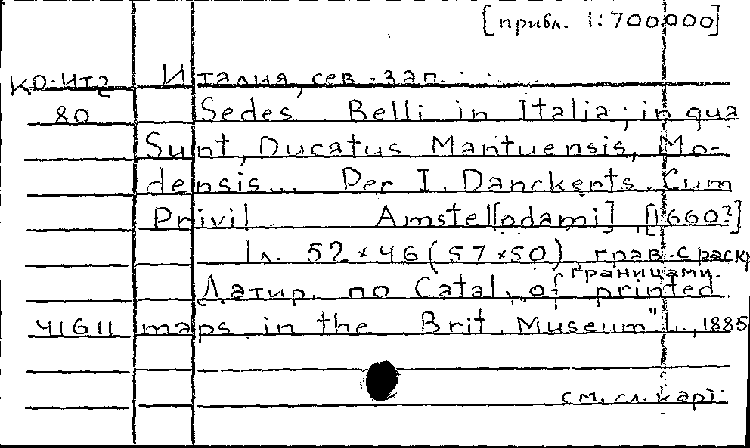 [прибл. 1:700000]
КО-ИТ2 Италия, сев.-зап.
80 Sedes Belli in Italia; in qua
Sunt, Ducatus Mantuensis, Mo-
densis... Per I. Danckerts. Cum
Privil Amstel[odami], [1660?]
1 л. 52×46 (57×50), грав. с раскр
границами.
Датир. по Catal. of printed
41611 maps in the Brit. Museum"..., 1885
см. сл. карт.